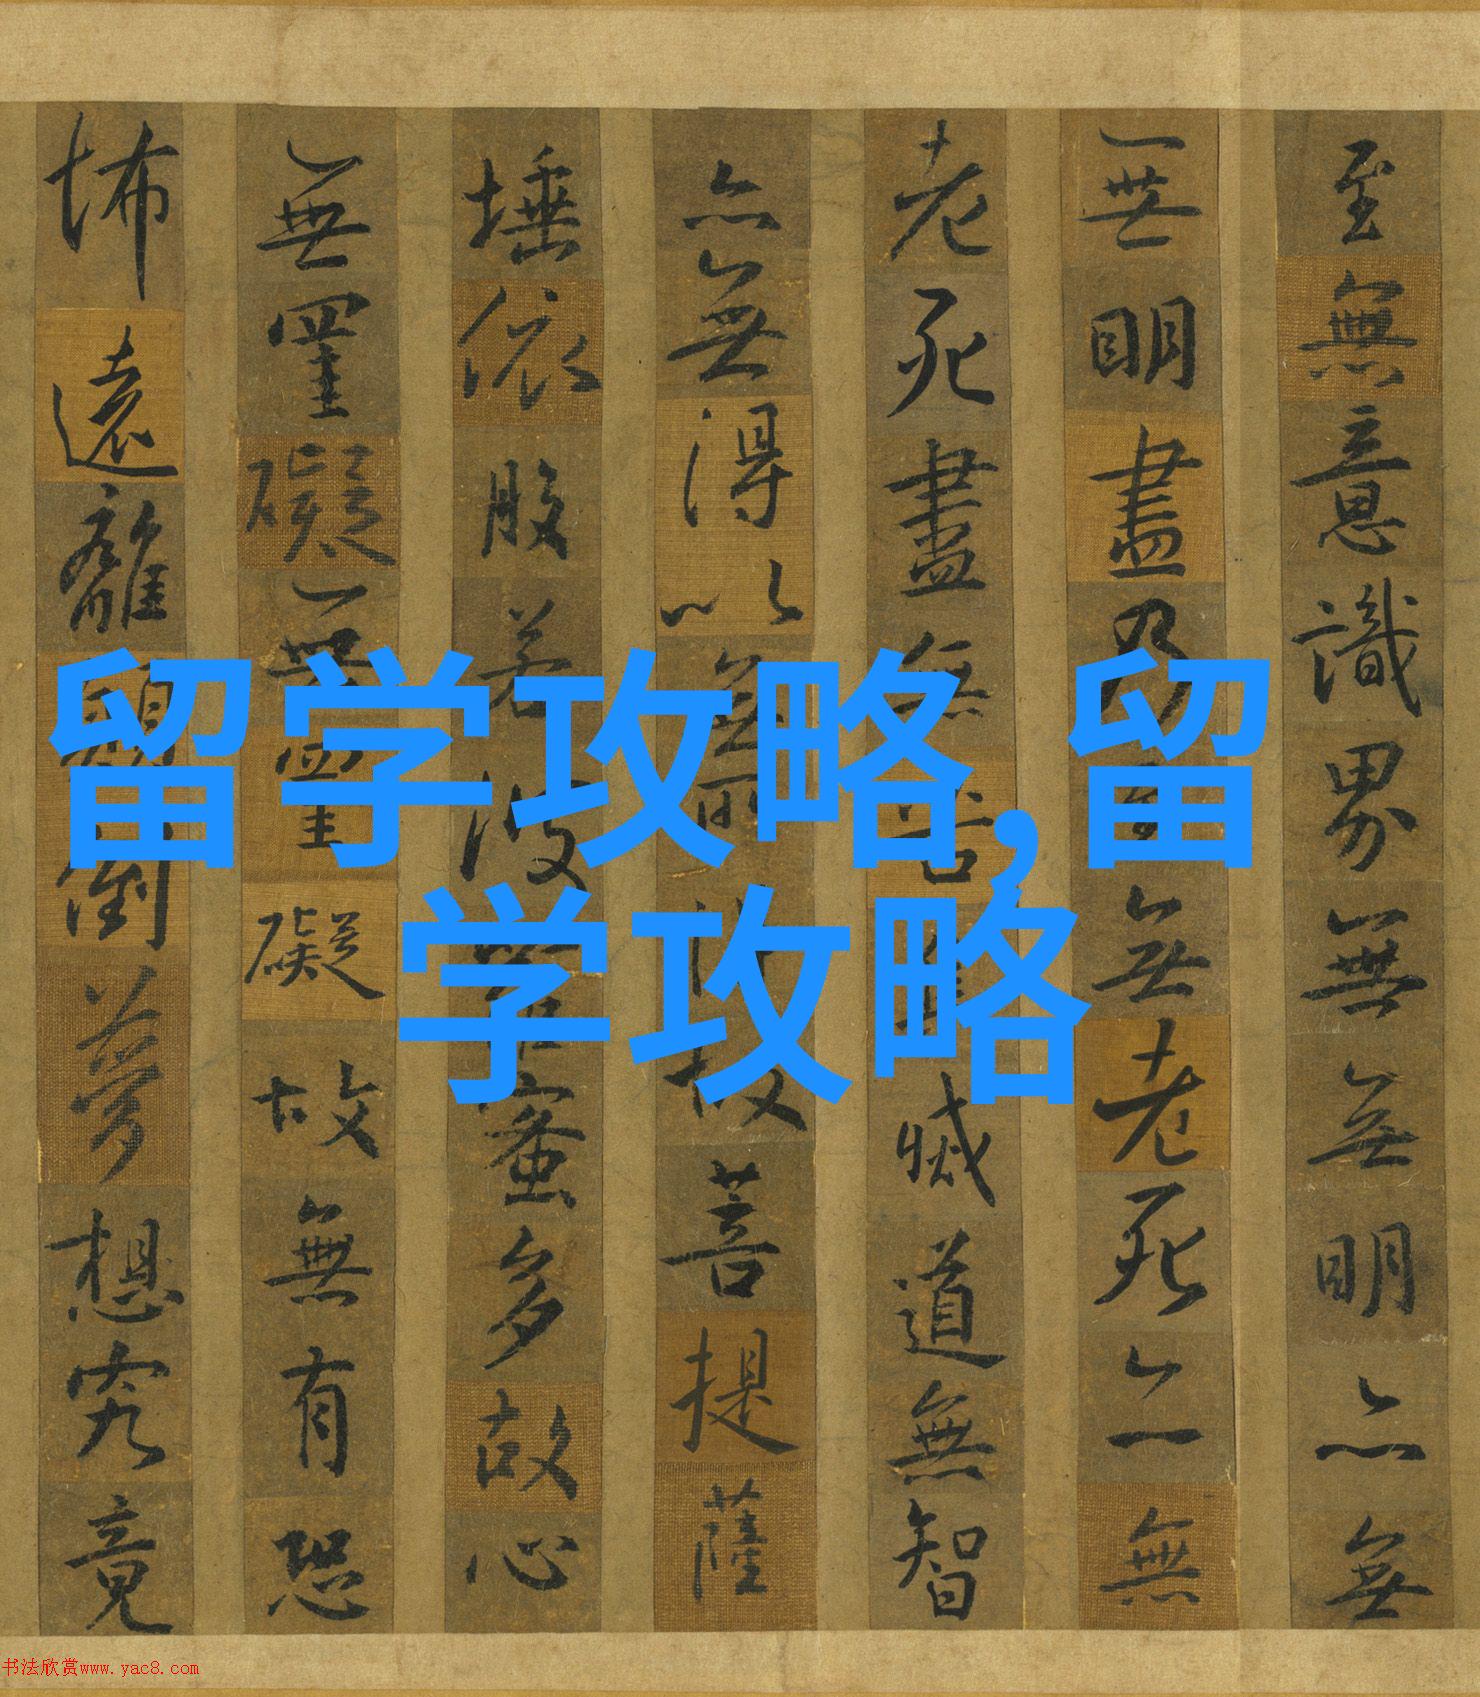 留学攻略,留
学攻略
至無意識界無無明亦無
無明盡乃無老死亦無
老死盡無苦滅道無智
亦無得以無所故菩提薩
埵依般若波蜜多故心
無罣礙無罣礙故無有恐
怖遠離顛倒夢想究竟
书法欣赏www.yac8.com